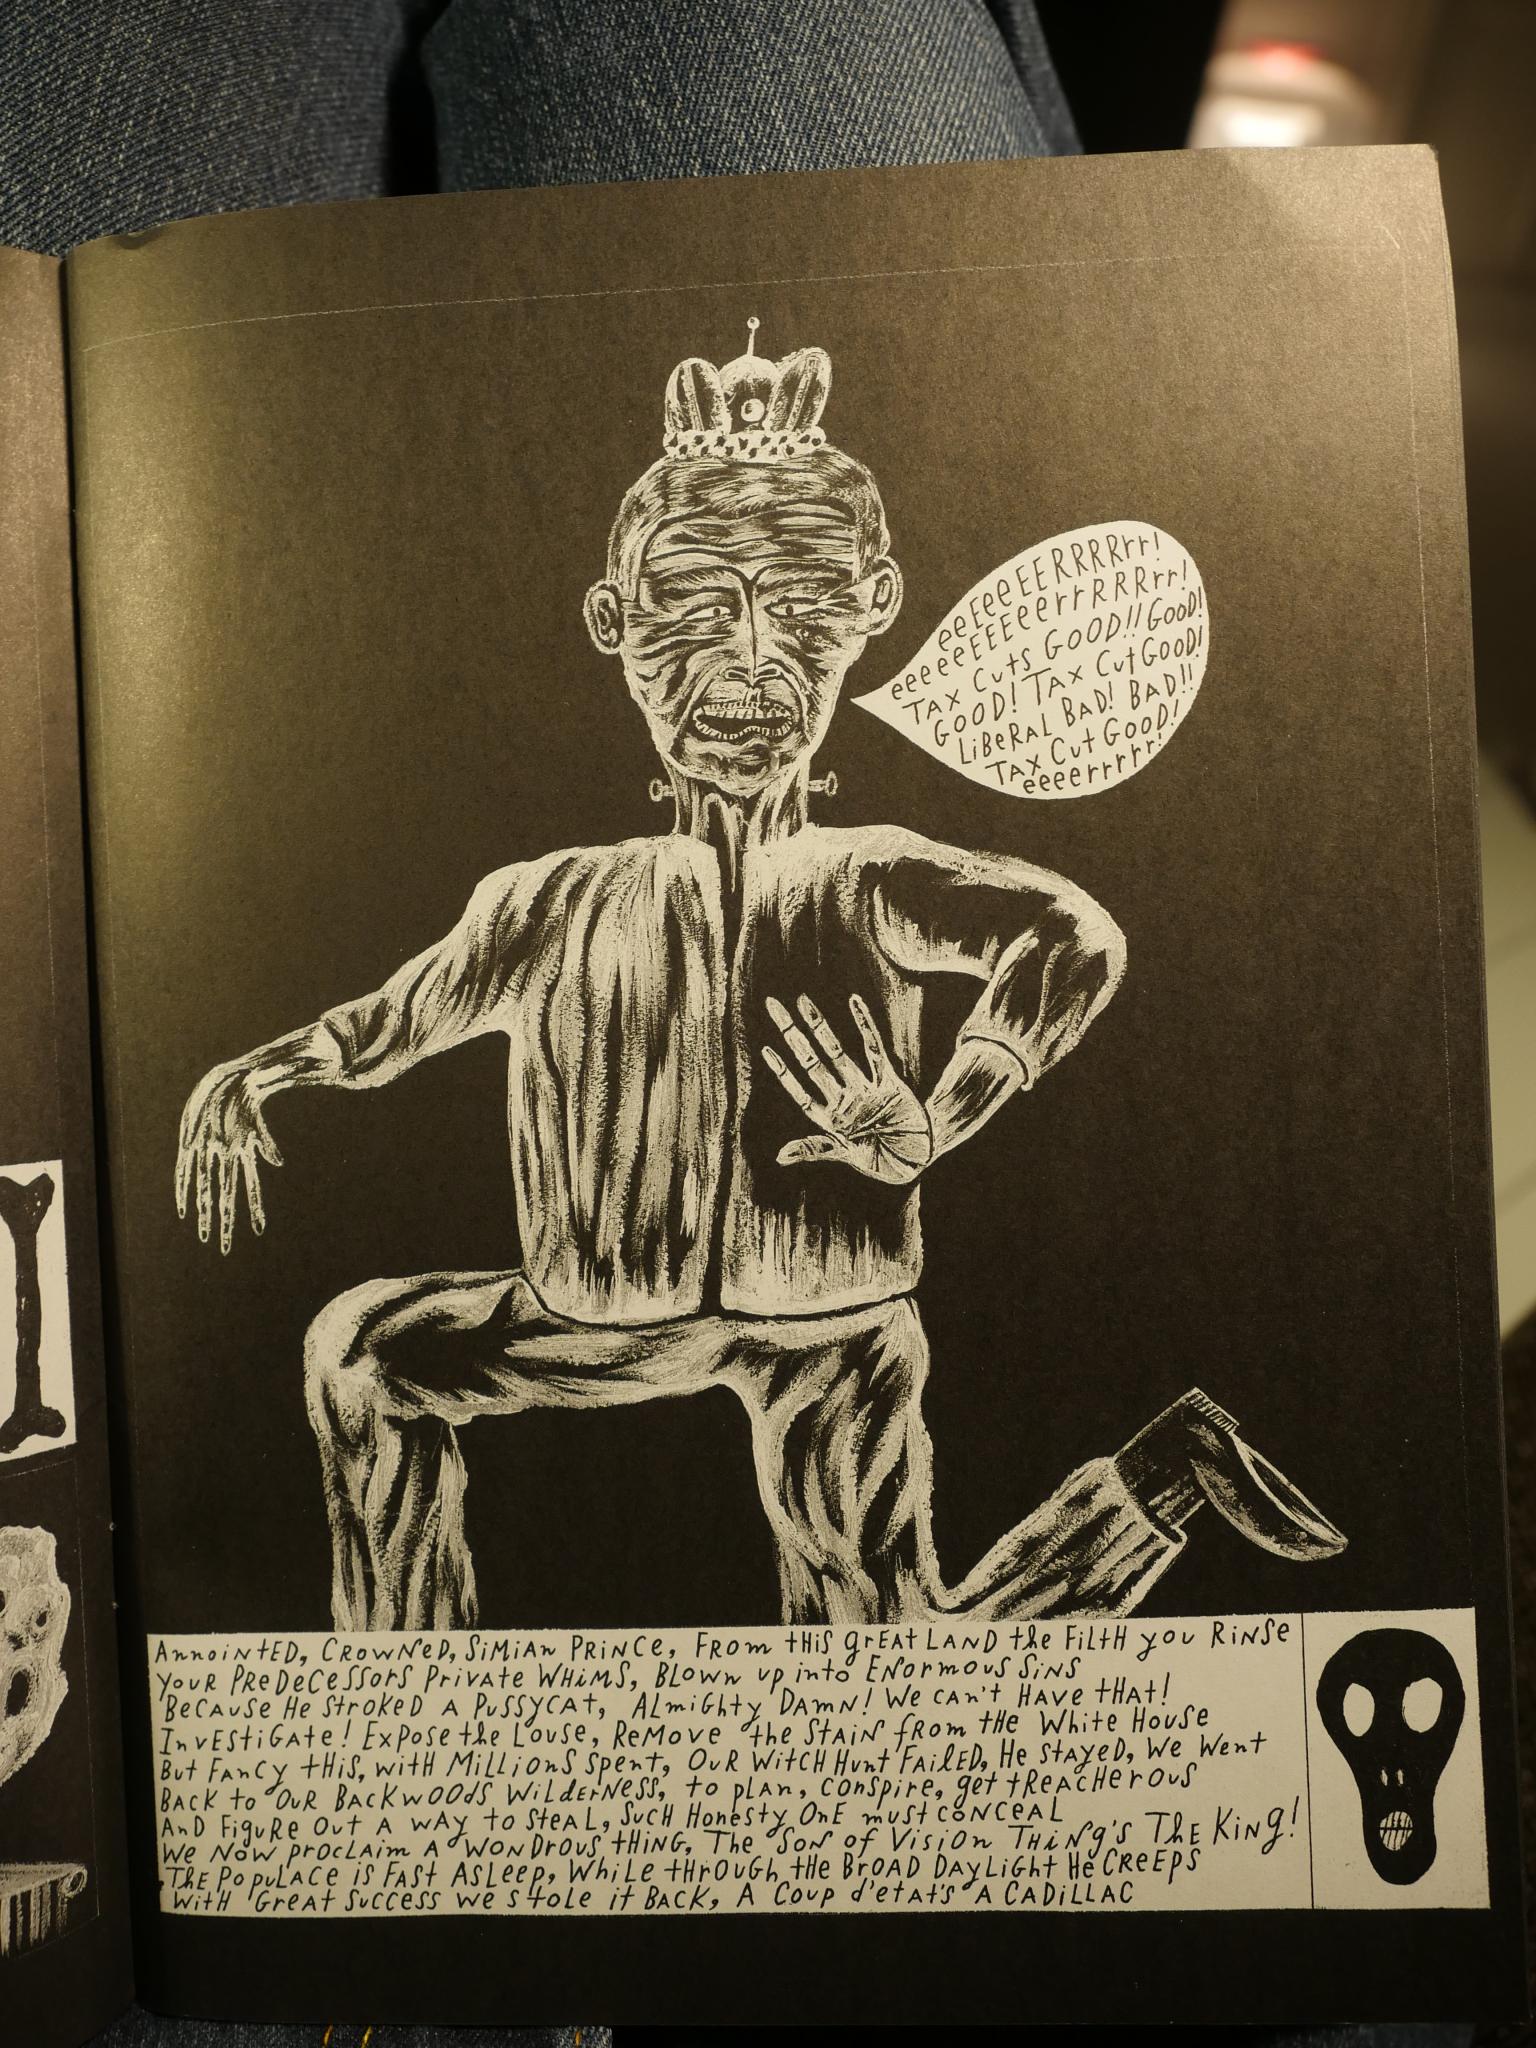 eeEeeEERRRRrr!
eeeeeEEEeeerrRRRrr!
TAX CuTS GOOD!! GOOD!
GOOD! TAX CuT GOOD!
LiBeRAL BAD! BAD!!
TAX CuT GooD!
eeeerrrrr!
AnnointED, CROWNeD, SiMiAn PRiNCe, FRom tHiS gREAT LAND the FiLtH you RiNSe
youR PReDeCeSSoRS PRivate WHiMS, BLOWN up into ENoRmouS SiNS
BeCAuSe He StRoKeD A PuSSyCAT, ALmiGHty DAMN! We CAn't HAVe tHAt!
InvEStiGAtE! ExPoSe the LouSe, ReMove the StAiN fRom tHe WHite HouSe
But FAnCy tHiS, witH MiLLionS SPent, OuR WitCH Hunt FAiLeD, He StAyeD, We Went
BACK to OuR BACKWOOdS WiLdeRNeSS, to pLAn, ConSpiRe, get tReACHeRouS
AnD FiguRe Out A wAy to SteAL, SuCH HoneSty OnE muSt conCeAL
We NOW pRoCLAim A WONDROuS tHiNG, THe SoN of ViSioN THiNg'S THe KiNg!
THe PoPuLACe iS FASt ASLeep, WHiLe tHROuGH tHe BRoAD DAyLiGHt He CReePS
WitH GReAt SuCCeSS we StoLe it BACK, A Coup d'etAt'S A CADiLLAC